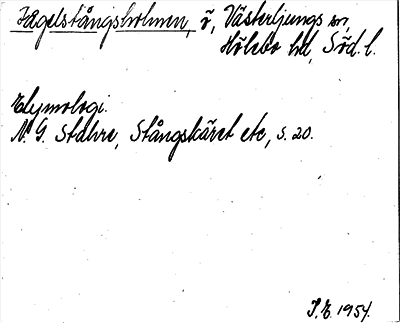 Fågelstångsholmen, ö, Västerljungs sn,
Hölebo hd, Söd. l.
Etymologi.
N. G. Stahre, Stångskäret etc, s. 20.
I. E. 1954.